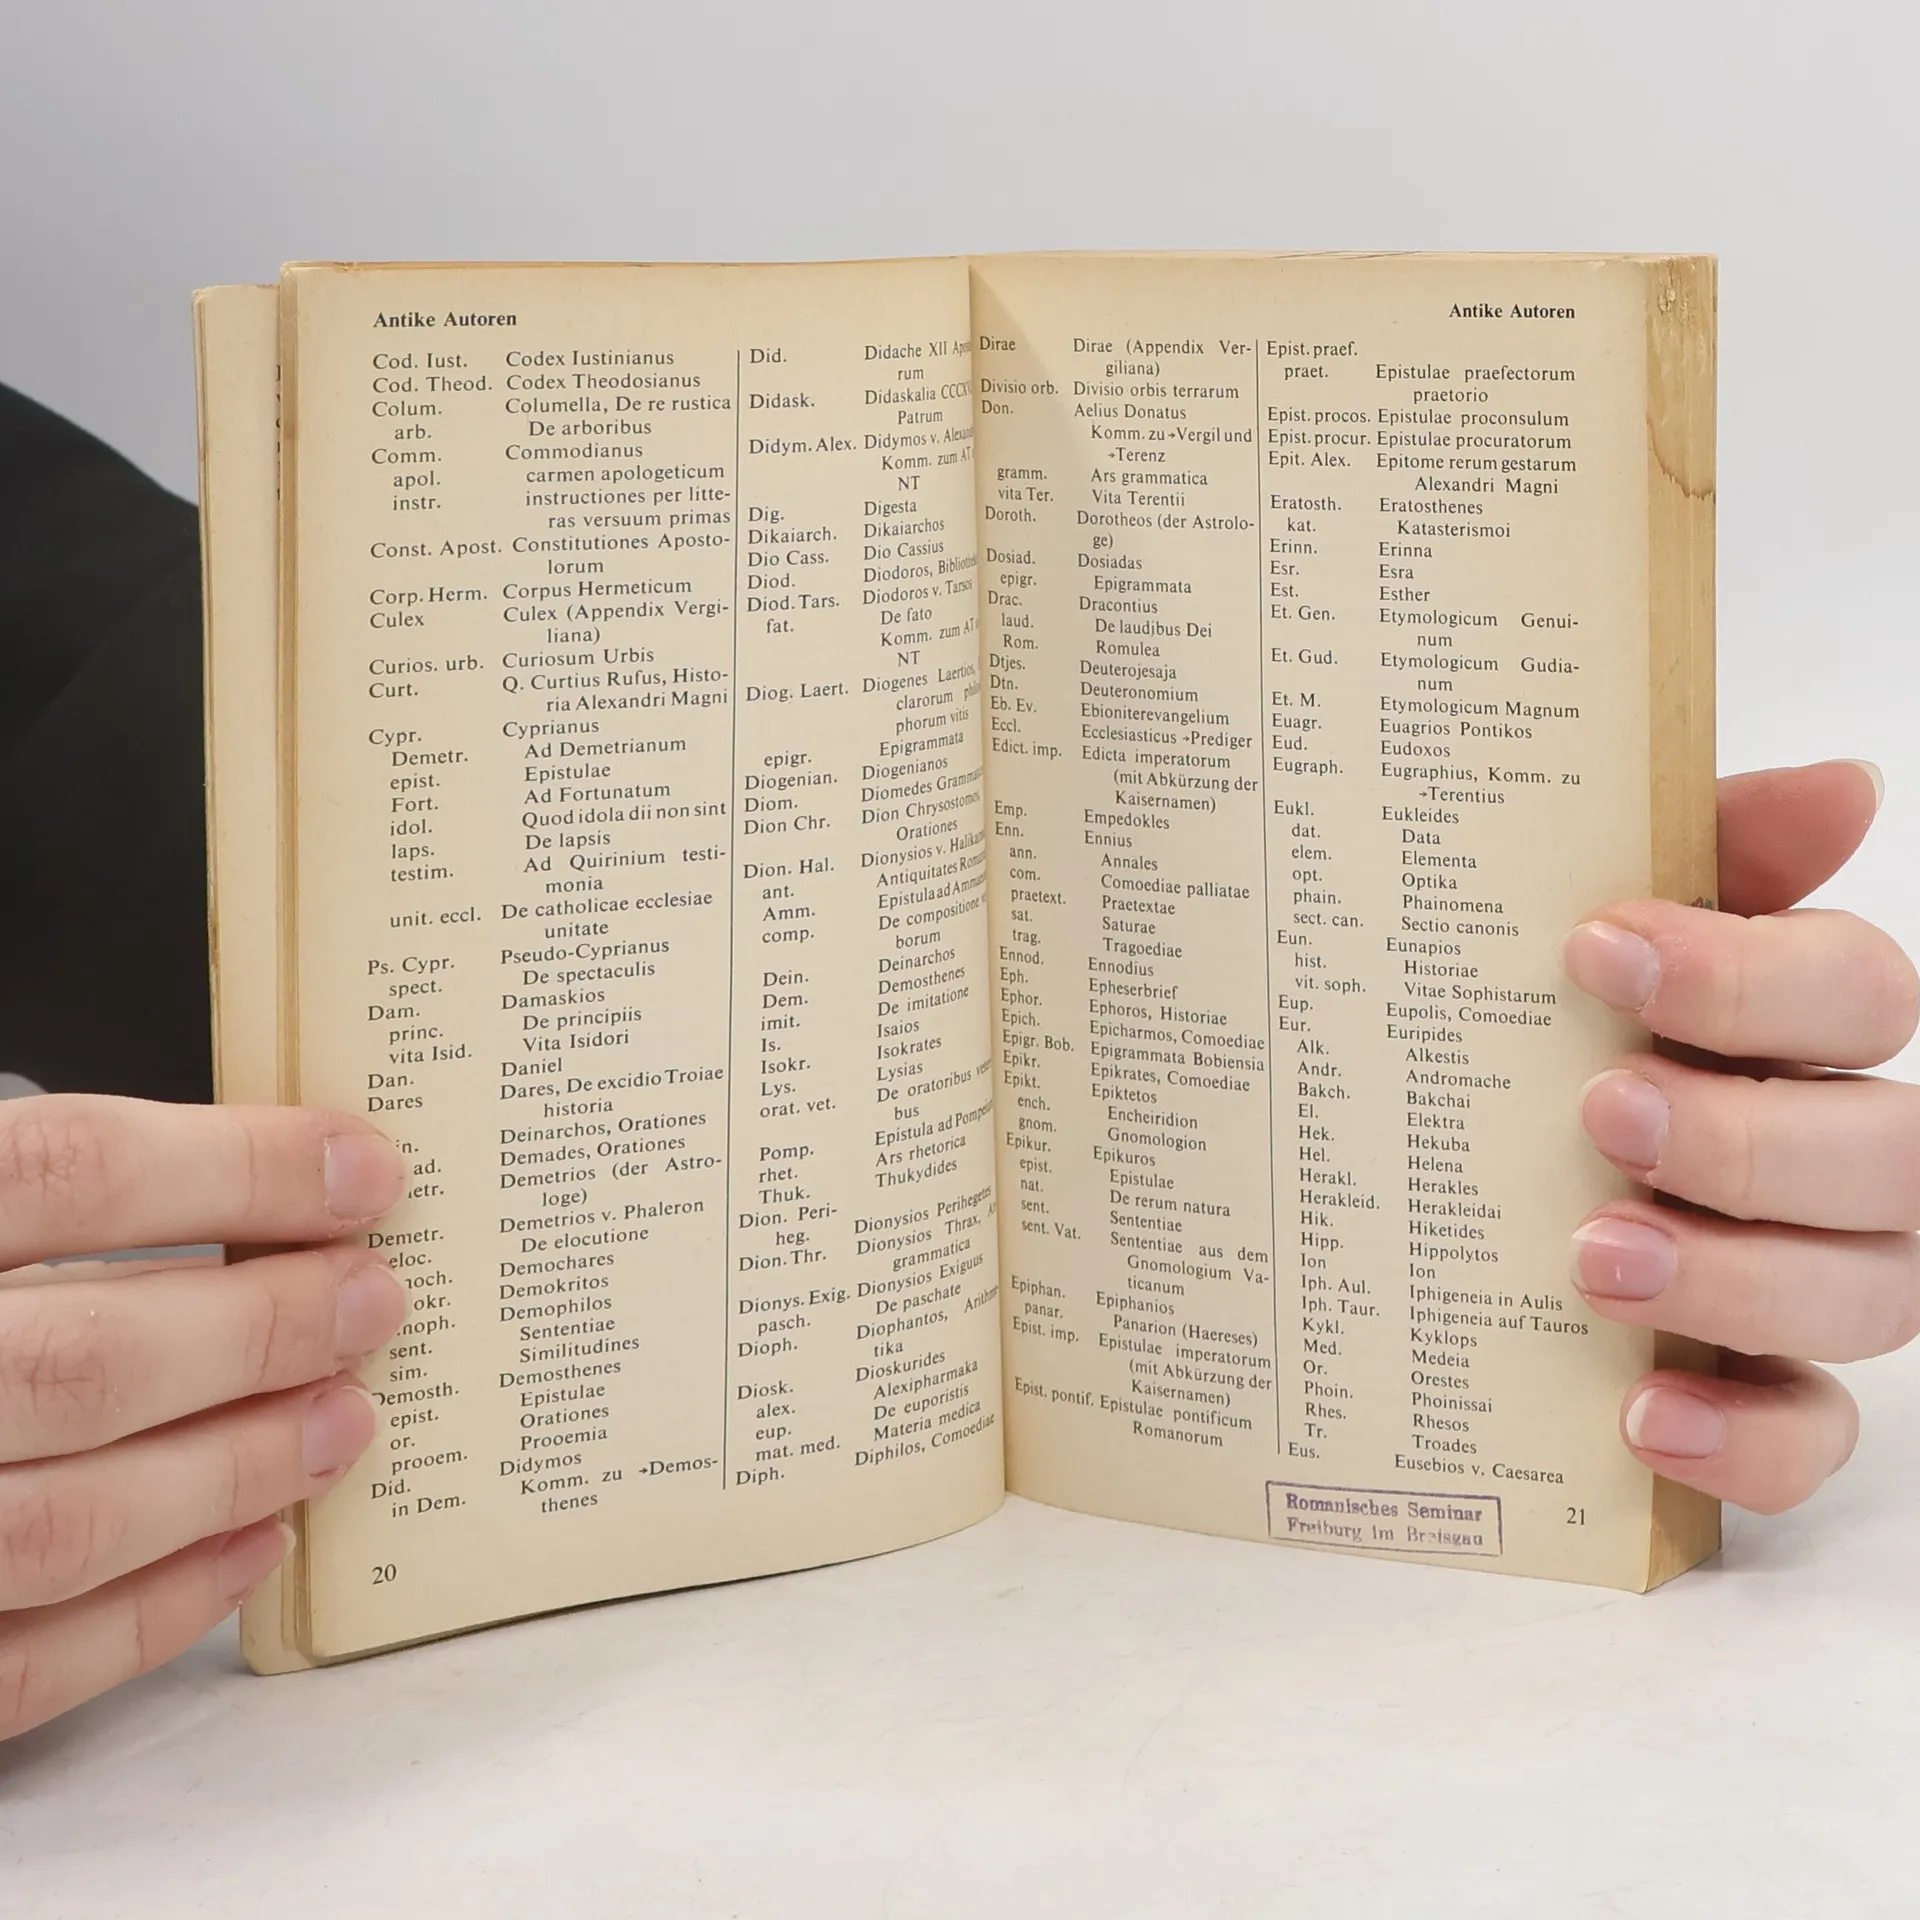 Antike Autoren
Cod. Iust. Codex Iustinianus
Cod. Theod. Codex Theodosianus
Colum. Columella, De re rustica
arb. De arboribus
Comm. Commodianus
apol. carmen apologeticum
instr. instructiones per litte-
ras versuum primas
Const. Apost. Constitutiones Aposto-
lorum
Corp. Herm. Corpus Hermeticum
Culex Culex (Appendix Vergi-
liana)
Curios. urb. Curiosum Urbis
Curt. Q. Curtius Rufus, Histo-
ria Alexandri Magni
Cypr. Cyprianus
Demetr. Ad Demetrianum
epist. Epistulae
Fort. Ad Fortunatum
idol. Quod idola dii non sint
laps. De lapsis
testim. Ad Quirinium testi-
monia
unit. eccl. De catholicae ecclesiae
unitate
Ps. Cypr. Pseudo-Cyprianus
spect. De spectaculis
Dam. Damaskios
princ. De principiis
vita Isid. Vita Isidori
Dan. Daniel
Dares Dares, De excidio Troiae
historia
Deinarchos, Orationes
Demades, Orationes
Demetrios (der Astro-
loge)
Demetr. Demetrios v. Phaleron
eloc. De elocutione
Demochares
Demokritos
Demophilos
sent. Sententiae
sim. Similitudines
Demosth. Demosthenes
epist. Epistulae
or. Orationes
prooem. Prooemia
Did. Didymos
in Dem. Komm. zu →Demos-
thenes
20
Did. Didache XII
rum
Didask. Didaskalia
Patrum
Didym. Alex. Didymos v.
Komm. zum AT
NT
Dig. Digesta
Dikaiarch. Dikaiarchos
Dio Cass. Dio Cassius
Diod. Diodoros,
Diod. Tars. Diodoros v. Tarsos
fat. De fato
Komm. zum AT
NT
Diog. Laert. Diogenes Laertios,
clarorum
phorum vitis
epigr. Epigrammata
Diogenian. Diogenianos
Diom. Diomedes
Dion Chr. Dion Chrysostomos,
Orationes
Dion. Hal. Dionysios v.
ant. Antiquitates
Amm. Epistula ad
comp. De compositione
borum
Dein. Deinarchos
Dem. Demosthenes
imit. De imitatione
Is. Isaios
Isokr. Isokrates
Lys. Lysias
orat. vet. De oratoribus
bus
Pomp. Epistula ad
rhet. Ars rhetorica
Thuk. Thukydides
Dion. Peri-
heg. Dionysios Perihegetes
Dion. Thr. Dionysios Thrax,
grammatica
Dionys. Exig. Dionysios Exiguus
pasch. De paschate
Dioph. Diophantos,
tika
Diosk. Dioskurides
alex. Alexipharmaka
eup. De euporistis
mat. med. Materia medica
Diph. Diphilos, Comoediae
Antike Autoren
Dirae Dirae (Appendix Ver-
giliana)
Divisio orb. Divisio orbis terrarum
Don. Aelius Donatus
Komm. zu →Vergil und
→Terenz
gramm. Ars grammatica
vita Ter. Vita Terentii
Doroth. Dorotheos (der Astrolo-
ge)
Dosiad. Dosiadas
epigr. Epigrammata
Drac. Dracontius
laud. De laudibus Dei
Rom. Romulea
Dtjes. Deuterojesaja
Dtn. Deuteronomium
Eb. Ev. Ebioniterevangelium
Eccl. Ecclesiasticus →Prediger
Edict. imp. Edicta imperatorum
(mit Abkürzung der
Kaisernamen)
Emp. Empedokles
Enn. Ennius
ann. Annales
com. Comoediae palliatae
praetext. Praetextae
sat. Saturae
trag. Tragoediae
Ennod. Ennodius
Eph. Epheserbrief
Ephor. Ephoros, Historiae
Epich. Epicharmos, Comoediae
Epigr. Bob. Epigrammata Bobiensia
Epikr. Epikrates, Comoediae
Epikt. Epiktetos
ench. Encheiridion
gnom. Gnomologion
Epikur. Epikuros
epist. Epistulae
nat. De rerum natura
sent. Sententiae
sent. Vat. Sententiae aus dem
Gnomologium Va-
ticanum
Epiphan. Epiphanios
panar. Panarion (Haereses)
Epist. imp. Epistulae imperatorum
(mit Abkürzung der
Kaisernamen)
Epist. pontif. Epistulae pontificum
Romanorum
Epist. praef.
praet. Epistulae praefectorum
praetorio
Epist. procos. Epistulae proconsulum
Epist. procur. Epistulae procuratorum
Epit. Alex. Epitome rerum gestarum
Alexandri Magni
Eratosth. Eratosthenes
kat. Katasterismoi
Erinn. Erinna
Esr. Esra
Est. Esther
Et. Gen. Etymologicum Genui-
num
Et. Gud. Etymologicum Gudia-
num
Et. M. Etymologicum Magnum
Euagr. Euagrios Pontikos
Eud. Eudoxos
Eugraph. Eugraphius, Komm. zu
→Terentius
Eukl. Eukleides
dat. Data
elem. Elementa
opt. Optika
phain. Phainomena
sect. can. Sectio canonis
Eun. Eunapios
hist. Historiae
vit. soph. Vitae Sophistarum
Eup. Eupolis, Comoediae
Eur. Euripides
Alk. Alkestis
Andr. Andromache
Bakch. Bakchai
El. Elektra
Hek. Hekuba
Hel. Helena
Herakl. Herakles
Herakleid. Herakleidai
Hik. Hiketides
Hipp. Hippolytos
Ion Ion
Iph. Aul. Iphigeneia in Aulis
Iph. Taur. Iphigeneia auf Tauros
Kykl. Kyklops
Med. Medeia
Or. Orestes
Phoin. Phoinissai
Rhes. Rhesos
Tr. Troades
Eus. Eusebios v. Caesarea
Romanisches Seminar
Freiburg im Breisgau
21